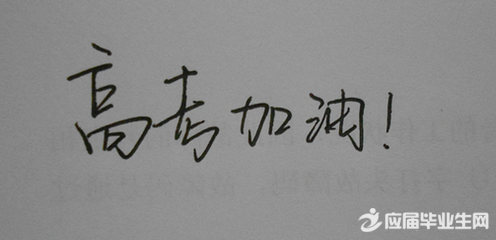 高考加油!
应届毕业生网